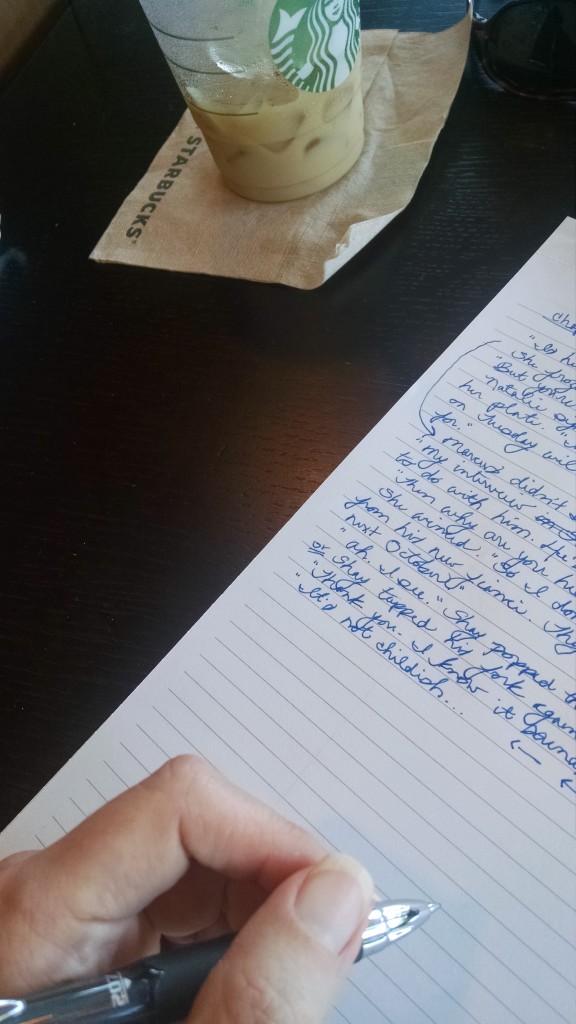 STARBUCKS
chap
"Is he
She frog
"But you're
Natalie
her plate. "I
on Tuesday will
for."
Marcus didn't
"My interview
to do with him. He
"Then why are you he
She winked. "So I don
from his new fiancé. They
next October!"
"Ah. I see." Shay popped th
or Shay tapped his fork again
"Thank you. I know it
"It's not childish...